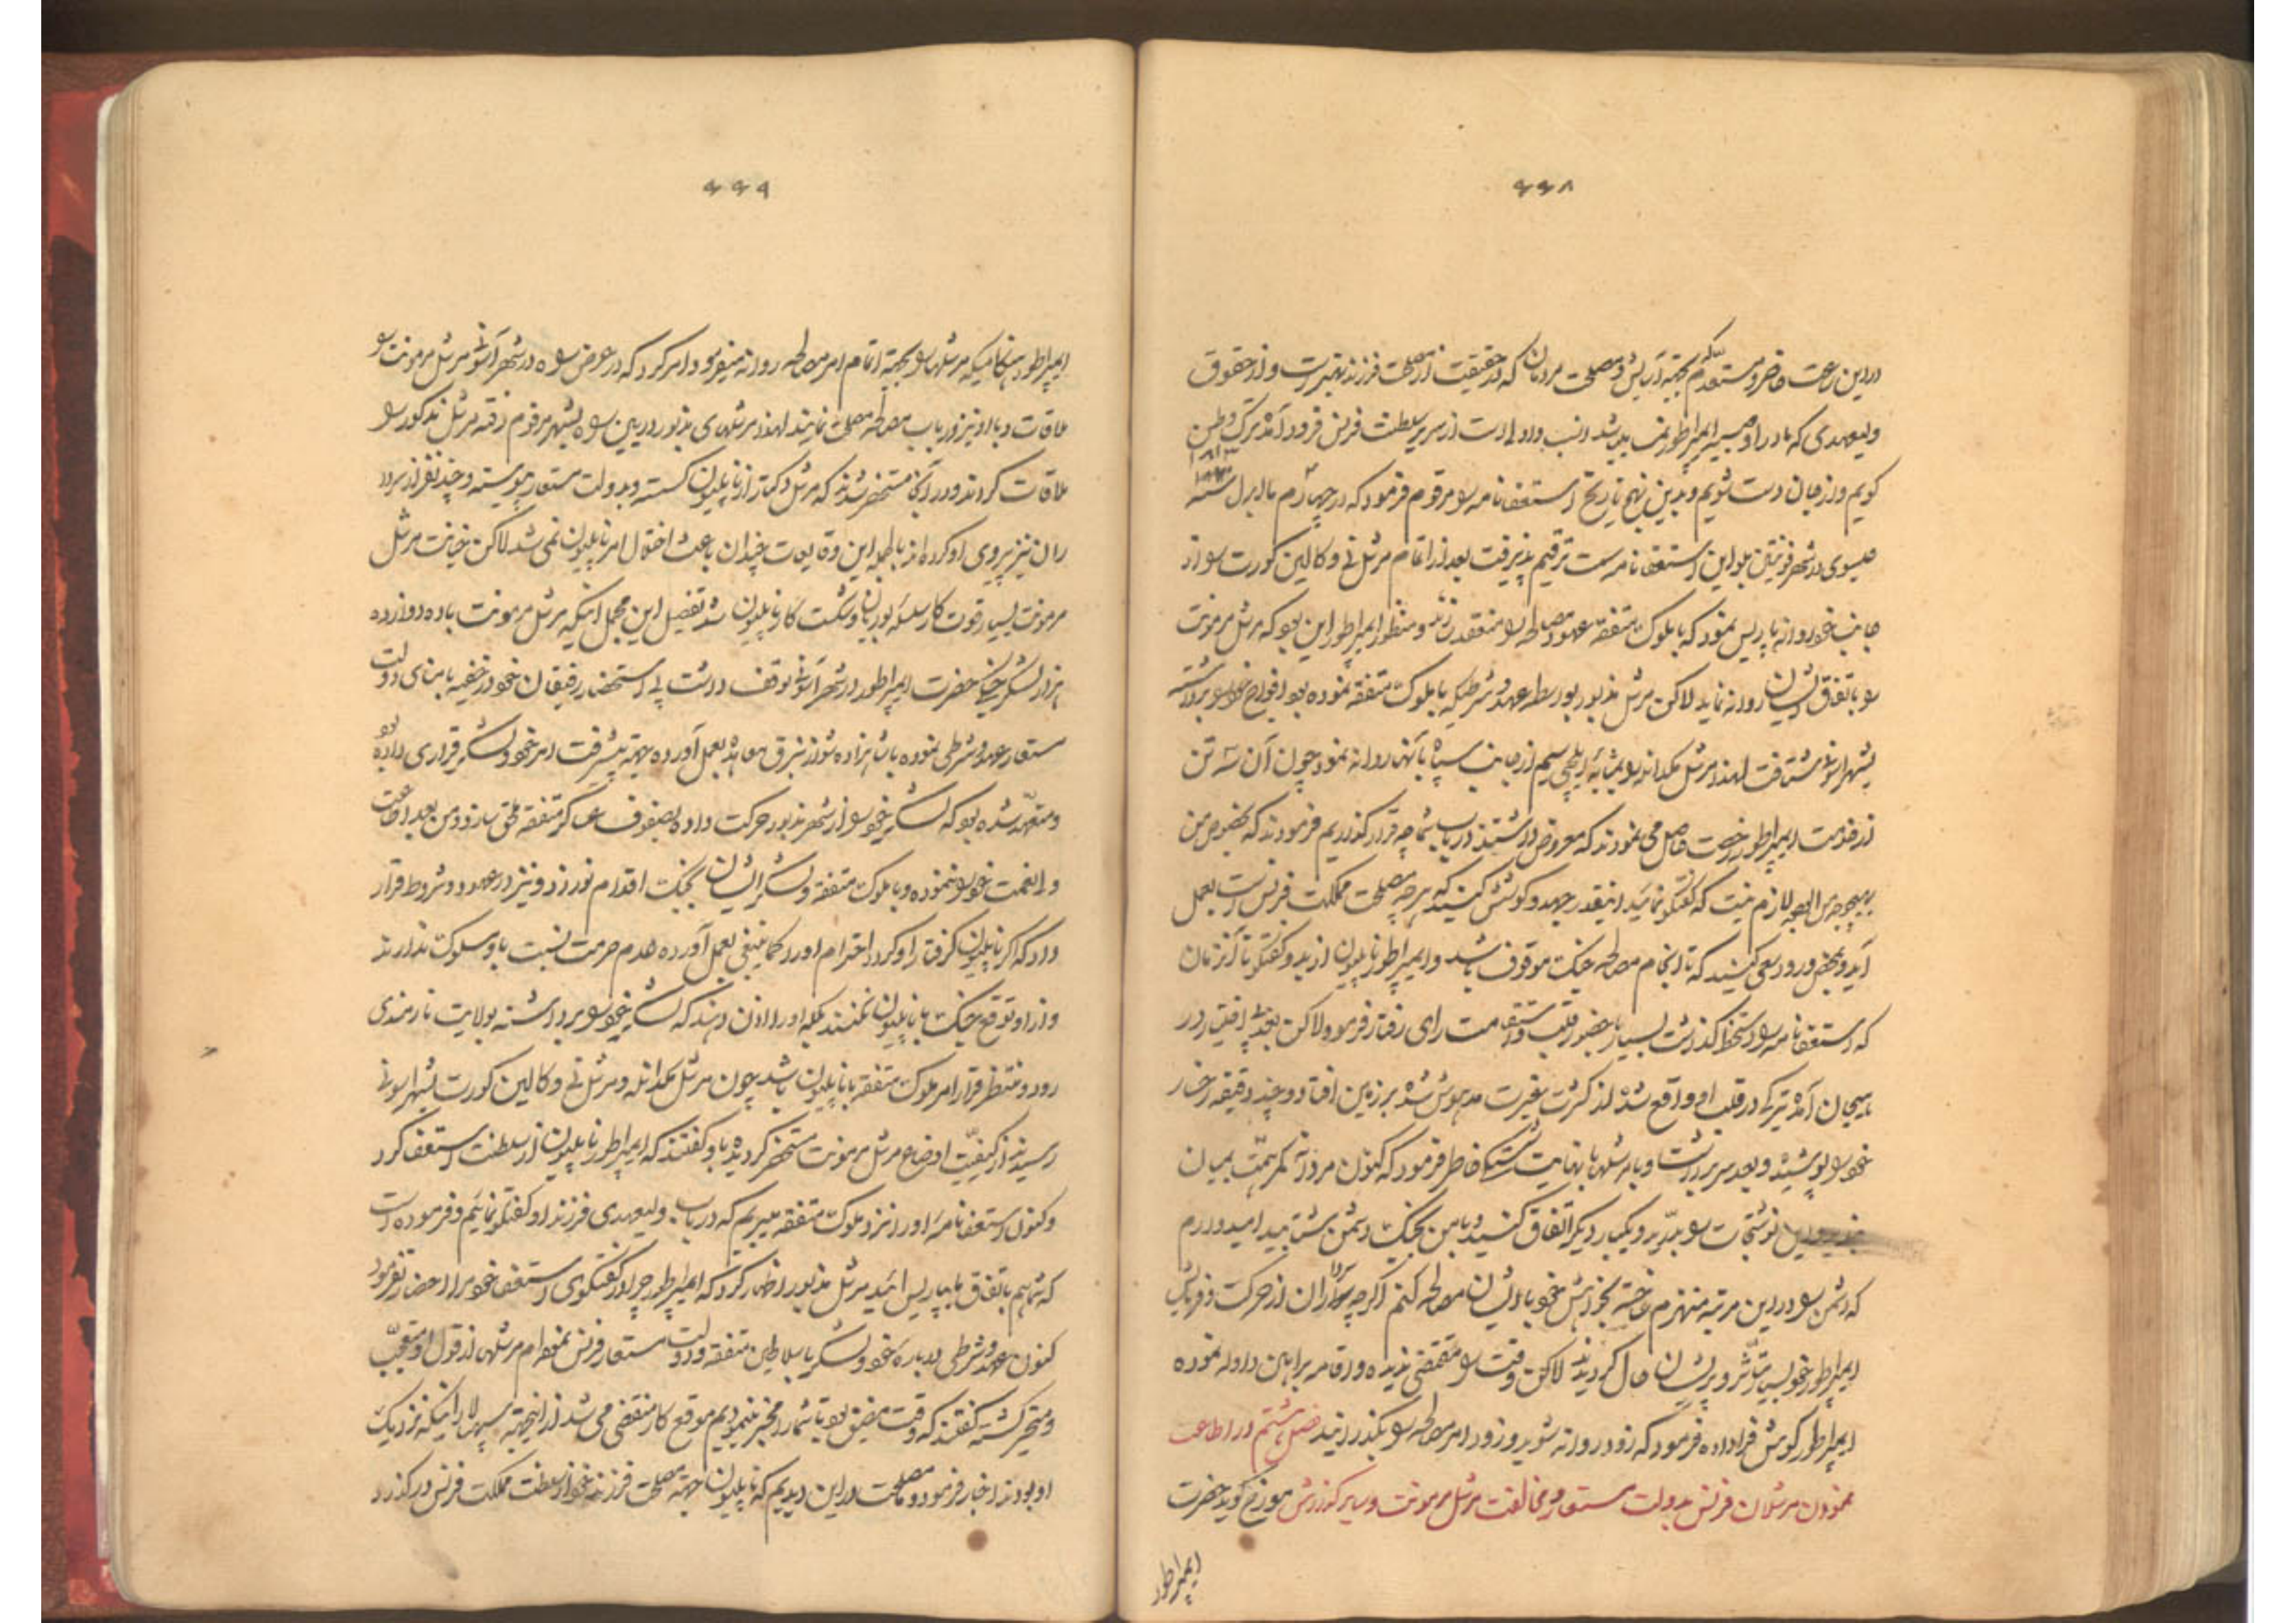 ۶۶۸
در این ساعت حاضر و مستعدم که بجهة آسایش و مصلحت مردمان که در حقیقت از مصلحت فرزندم بهتر است و از حقوق
ولیعهدی که مادر او صبیه ایمپراطور نمسه باشد انسب و اولی است از سریر سلطنت فرنس فرود آمده ترک وطن
کویم و از جان دست شویم و بدین نهج تاریخ استعفا نامه را مرقوم فرمود که در چهارم ماه ابرل سنه ۱۸۱۴
عیسوی در شهر فونتین بلو این استعفا نامه سمت ترقیم پذیرفت بعد از اتمام مرشل نی و کالین کورت را از
جانب خود روانه پاریس نمود که با ملوک متفقه عهود مصالحه را منعقد سازند و منظور ایمپراطور این بود که مرشل مرمونت
را باتفاق ایشان روانه نماید لاکن مرشل مذبور بواسطه عهد و شرطیکه با ملوک متفقه نموده بود افواج خود را برداشته
بشهر اسونی شتافت لهذا مرشل مکدانله را بمثابه ایلچی سیم از جانب سپاه با آنها روانه نمود چون آن سه تن
از خدمت ایمپراطور رخصت حاصل می نمودند که معروض داشتند در باب شما چه قرار گذاریم فرمودند که بخصوص من
بهیچوجه من الوجوه لازم نیست که گفتگو نمائید اینقدر جهد و کوشش کنید که هر چه مصلحت مملکت فرنس است بعمل
آید و بمحض ورود سعی کنید که تا انجام مصالحه جنک موقوف باشد و ایمپراطور ناپلیون از دید و گفتگو تا آنزمان
که استعفا نامه را دستخط گذاشت بسیار با حضور قلب و استقامت رای رفتار فرمود و لاکن بعد یافتن در
هیجان آمده تیرکی در قلب او واقع شده از کثرت غیرت مدهوش شده بر زمین افتاد و چند دقیقه رخسار
خود را پوشیده و بعد سر برداشت و با مرشلها با نهایت شکستکی خاطر فرمود که کنون مردآنه کمر همت بمیان
نوشتجات را بدرید و یکبار دیگر اتفاق کنید و با من بجنک دشمن بشتابید امیدوارم
که دشمن را در این مرتبه منهزم ساخته بخواهش خود با ایشان مصالحه کنم اگر چه سرداران از حرکت و فرمایش
ایمپراطور خود بسیار متأثر و پریشان حال گردیدند لاکن وقت را مقتضی ندیده و اقامه براهین و ادله نموده
ایمپراطور گوش فرا داده فرمود که زود روانه شوید و زود امر مصالحه را بگذرانید فصل هشتم در اطاعت
نمودن مرشلان فرنس بدولت مستعار و مخالفت مرشل مرمونت و سایر گذارش مورخ گوید حضرت
ایمپراطور
۶۶۹
ایمپراطور هنگامیکه مرشلها را بجهة اتمام امر مصالحه روانه میفرمود امر کرد که در عرض راه در شهر اسونی مرشل مرمونت را
ملاقات و با او نیز در باب مصالحه مصلحت نمایند لهذا مرشلهای مذبور در بین راه بشهر مرقوم رفته مرشل مذکور را
ملاقات کردند و در آنجا مستحضر شدند که مرشل وکتار از ناپلیون گسسته و بدولت مستعار پیوسته و چند نفر از سردا
ران نیز پیروی او کرده اند بالجمله این وقایعات چندان باعث اختلال امر ناپلیون نمی شد لاکن خیانت مرشل
مرمونت بسیار قوت کار سلسله بوربان و شکست کار ناپلیون شد تفصیل این مجمل اینکه مرشل مرمونت با ده دوازده
هزار لشکر حضرت ایمپراطور در شهر اسونی توقف داشت بی استحضار رفیقان خود در خفیه با بنای دولت
مستعار عهد و شرطی نموده با شاهزاده شوازنبرق معاهده بعمل آورده جهة پیشرفت امر خود و لشکر قراری داده بود
و متعهد شده بود که لشکر خود را از شهر مذبور حرکت داده بصفوف عساکر متفقه ملحق سازد و من بعد اطاعت
ولی نعمت خود را ننموده و با ملوک متفقه و لشکر ایشان بجنک اقدام نورزد و نیز در عهود و شروط قرار
داد که اگر ناپلیون گرفتار او گردد احترام او را کما ینبغی بعمل آورده عدم حرمت نسبت باو سلوک ندارند
و از او توقع جنک با ناپلیون نکنند بلکه او را اذن دهند که لشکر خود را برداشته بولایت نارمندی
رود و منتظر قرار امر ملوک متفقه با ناپلیون باشد چون مرشل مکدانله و مرشل نی و کالین کورت بشهر اسونی
رسیدند از کیفیت اوضاع مرشل مرمونت مستحضر گردیده باو گفتند که ایمپراطور ناپلیون از سلطنت استعفا کرد
و کنون استعفا نامه او را نزد ملوک متفقه میبریم که در باب ولیعهدی فرزند او گفتگو نمائیم و فرموده است
که شما هم باتفاق ما بپاریس آئید مرشل مذبور اظهار کرد که ایمپراطور چرا در گفتگوی استعفا خود مرا احضار نفرمود
کنون عهد و شرطی در باره خود و لشکر با سلاطین متفقه و دولت مستعار فرنس نموده ام مرشلها از قول او متعجب
و متحیر گشته گفتند که وقت مضیق بود تا شما را مخبر مینمودیم موقع کار منقضی می شد از اینجهة سپهسالارانیکه نزدیک
او بودند اخبار فرمود و ما مصلحت در این دیدیم که ناپلیون جهة مصلحت فرزند خود از سلطنت مملکت فرنس در گذرد